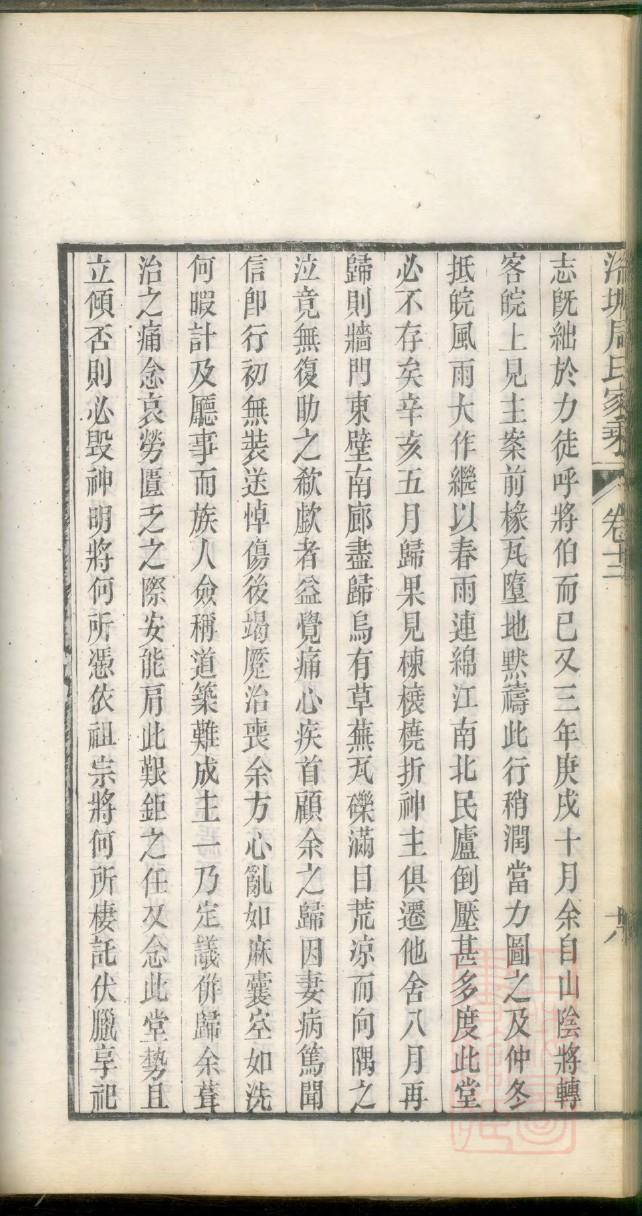 周氏家乘
卷十二
志旣絀於力徒呼將伯而已又三年庚戌十月余自山陰將轉
客皖上見主案前椽瓦墮地黙禱此行稍潤當力圖之及仲冬
抵皖風雨大作繼以春雨連綿江南北民廬倒壓甚多度此堂
必不存矣辛亥五月歸果見棟榱橈折神主俱遷他舍八月再
歸則牆門東壁南廊盡歸烏有草蕪瓦礫滿目荒凉而向隅之
泣竟無復助之欷歔者益覺痛心疾首顧余之歸因妻病篤聞
信卽行初無裝送悼傷後竭蹷治喪余方心亂如麻囊空如洗
何暇計及廳事而族人僉稱道築難成主一乃定議倂歸余葺
治之痛念哀勞匱乏之際安能肩此艱鉅之任又念此堂勢且
立傾否則必毁神明將何所憑依祖宗將何所棲託伏臘享祀